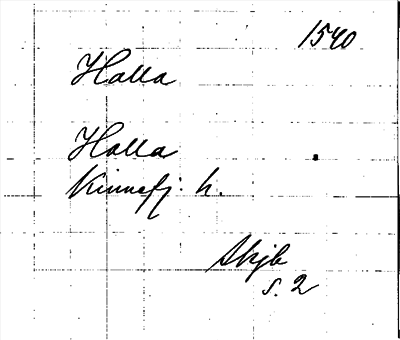 1540
Halla
Halla
Kinnefj. h.
Skjb
s. 2